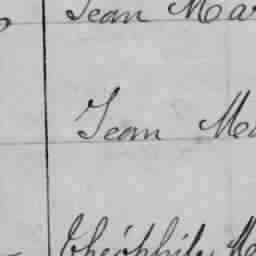 Jean Mar
Jean Ma
Théophile M